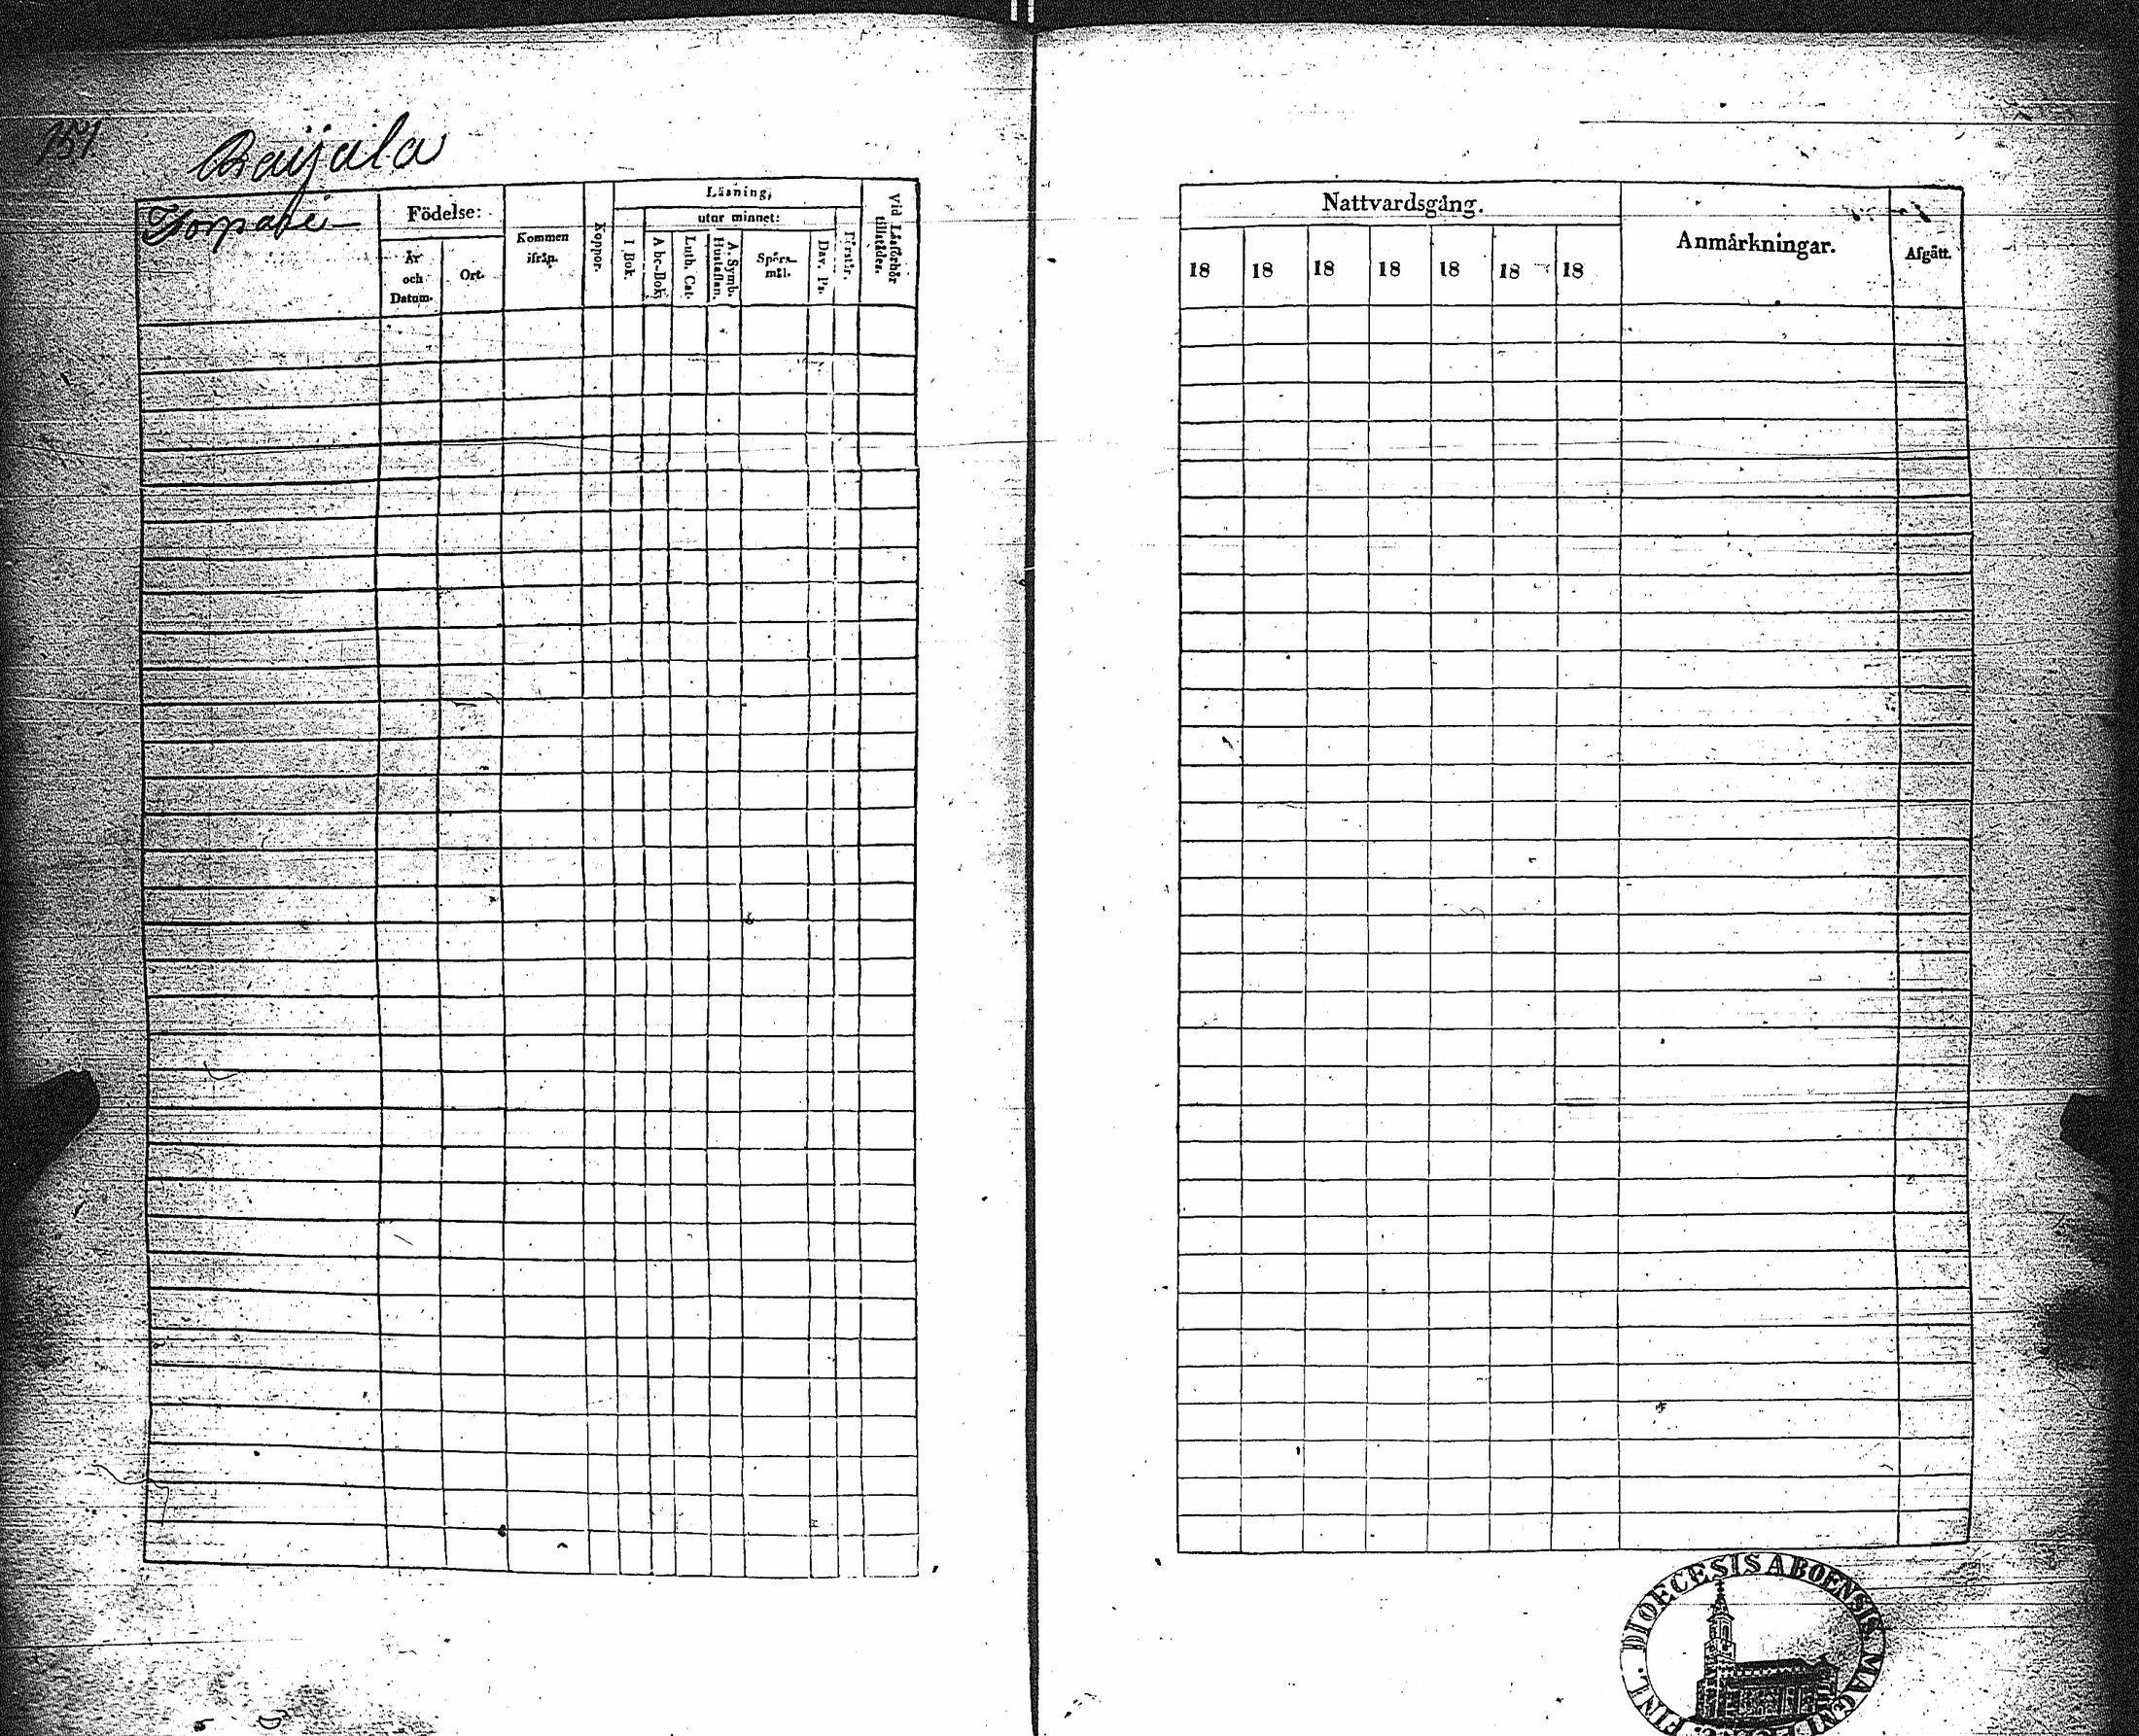 151.
Raijala
Torpare
Födelse:
År och Datum.
Ort.
Kommen ifrån.
Koppor.
Läsning,
I Bok.
utur minnet:
Abc-Bok.
Luth. Cat.
A. Symb. Hustaflan.
Spörsmål.
Dav. Ps.
Förstår.
Vid Läsförhör tillstädes.
Nattvardsgång.
18 18 18 18 18 18 18
Anmärkningar.
Afgått.
DIOECESIS ABOENSIS MAGNI
FINL.